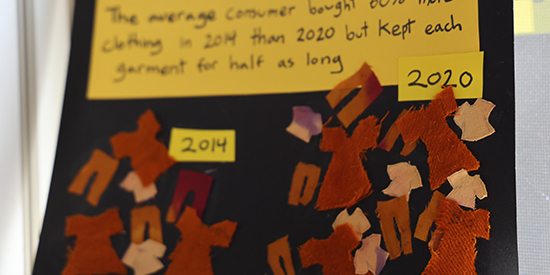 The average consumer bought 60% more
clothing in 2014 than 2020 but kept each
garment for half as long
2020
2014